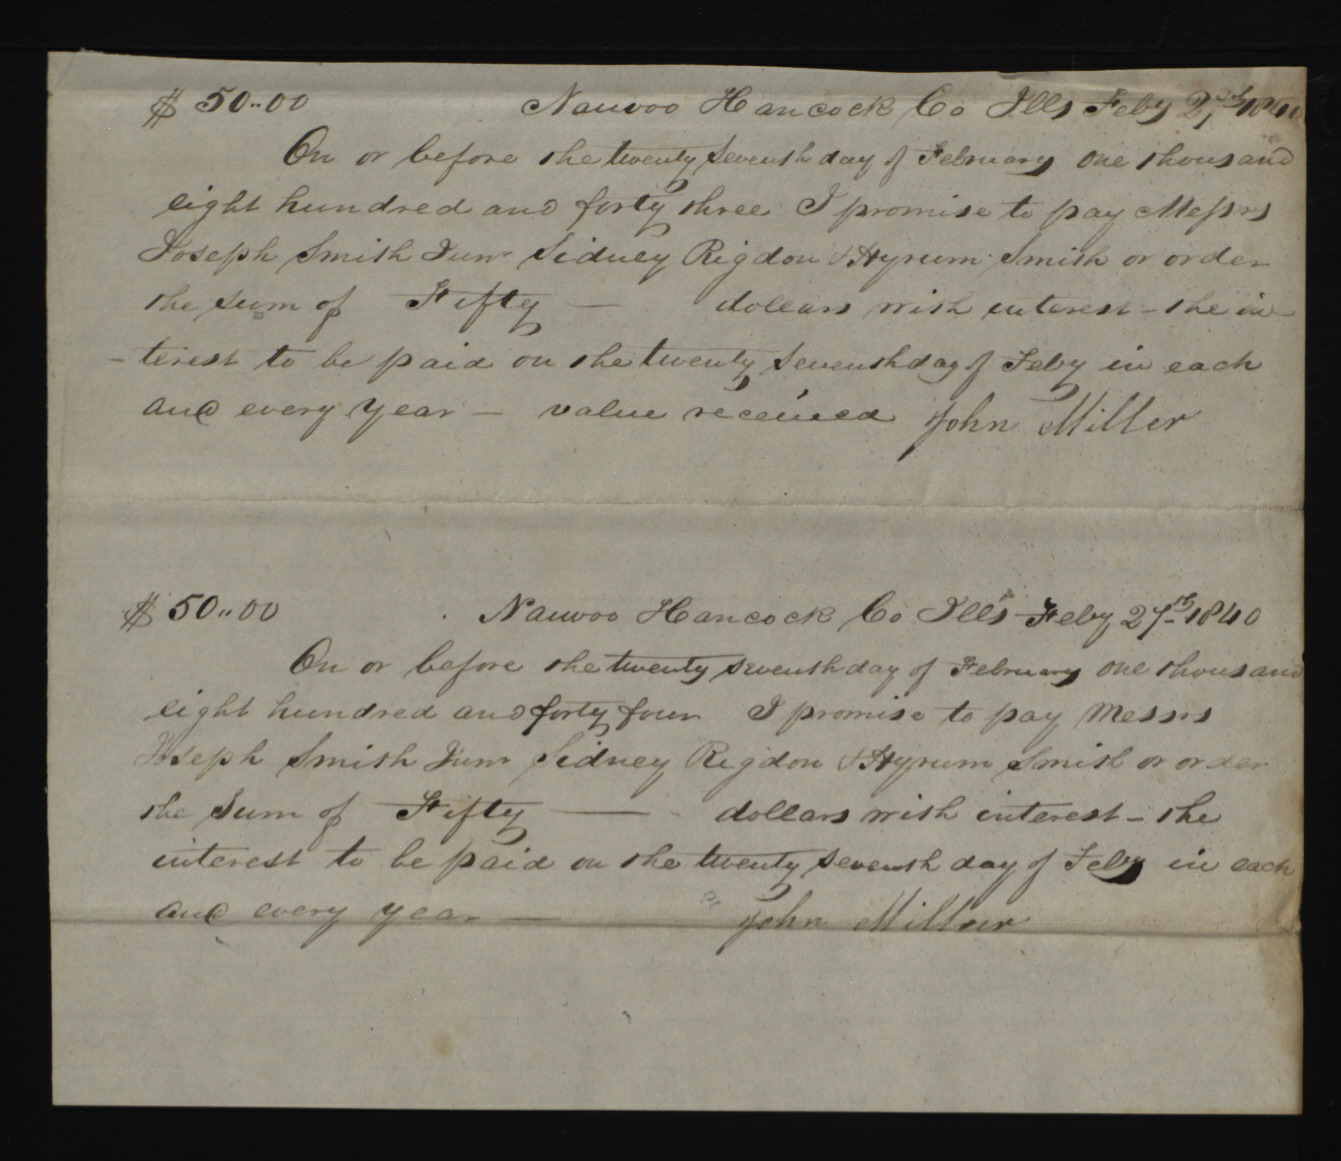 $ 50..00 Nauvoo Hancock Co Ills Feby 27th 1840
On or before the twenty seventh day of February one thousand
eight hundred and forty three I promise to pay Messrs
Joseph Smith Junr Sidney Rigdon & Hyrum Smith or order
the sum of Fifty — dollars with interest – the in-
-terest to be paid on the twenty seventh day of Feby in each
and every year — value received John Miller
$ 50..00 Nauvoo Hancock Co Ills Feby 27th 1840
On or before the twenty seventh day of February one thousand
eight hundred and forty four I promise to pay Messrs
Joseph Smith Junr Sidney Rigdon & Hyrum Smith or order
the Sum of Fifty — dollars with interest – the
interest to be paid on the twenty seventh day of Feby in each
and every year — John Miller